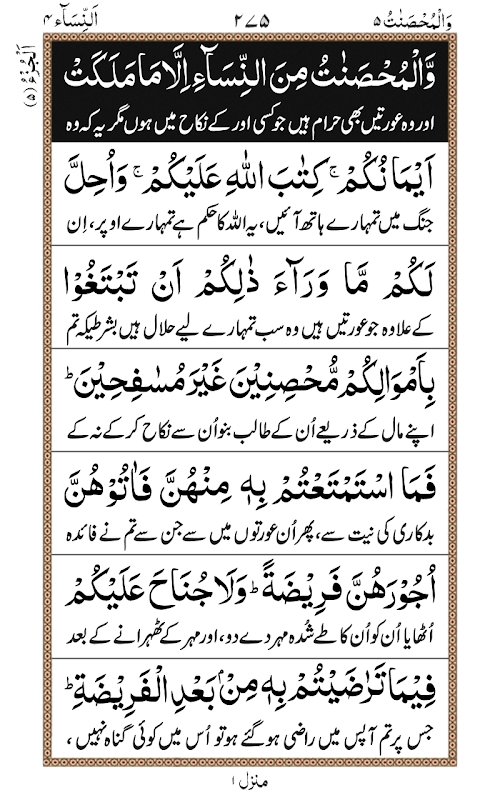 وَالْمُحْصَنٰتُ ۵ ۲۷۵ اَلنِّسَآء ۴
اَلْجُزْءُ (۵)
وَّالْمُحْصَنٰتُ مِنَ النِّسَآءِ اِلَّا مَا مَلَكَتْ
اور وہ عورتیں بھی حرام ہیں جو کسی اور کے نکاح میں ہوں مگر یہ کہ وہ
اَيْمَانُكُمْ ۚ كِتٰبَ اللّٰهِ عَلَيْكُمْ ۚ وَاُحِلَّ
جنگ میں تمہارے ہاتھ آئیں، یہ اللہ کا حکم ہے تمہارے اوپر، اِن
لَكُمْ مَّا وَرَآءَ ذٰلِكُمْ اَنْ تَبْتَغُوْا
کے علاوہ جو عورتیں ہیں وہ سب تمہارے لیے حلال ہیں بشرطیکہ تم
بِاَمْوَالِكُمْ مُّحْصِنِيْنَ غَيْرَ مُسٰفِحِيْنَ ؕ
اپنے مال کے ذریعے اُن کے طالب بنو اُن سے نکاح کر کے نہ کے
فَمَا اسْتَمْتَعْتُمْ بِهٖ مِنْهُنَّ فَاٰتُوْهُنَّ
بدکاری کی نیت سے، پھر اُن عورتوں میں سے جن سے تم نے فائدہ
اُجُوْرَهُنَّ فَرِيْضَةً ؕ وَلَا جُنَاحَ عَلَيْكُمْ
اُٹھایا اُن کو اُن کا طے شُدہ مہر دے دو، اور مہر کے ٹھہرانے کے بعد
فِيْمَا تَرٰضَيْتُمْ بِهٖ مِنْۢ بَعْدِ الْفَرِيْضَةِ ؕ
جس پر تم آپس میں راضی ہو گئے ہو تو اُس میں کوئی گناہ نہیں ،
منزل ۱